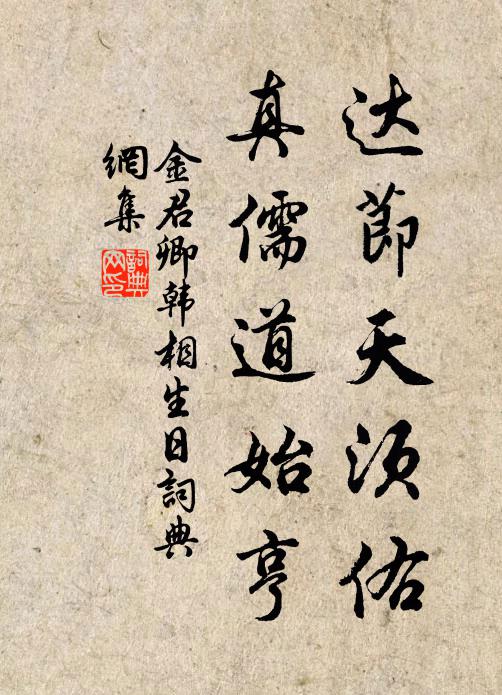 达節天须佑
真儒道始亨
金君卿韩相生日詞典
網集
詞典
网印